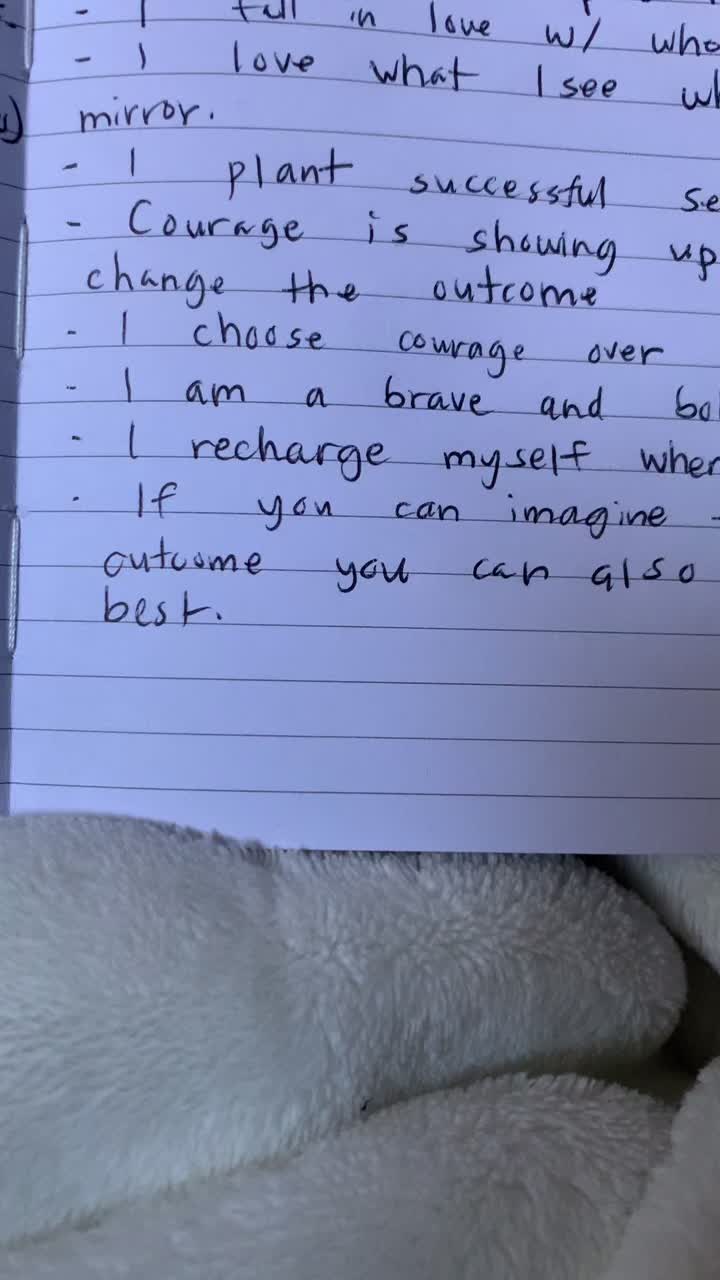 - I fall in love w/ who
- I love what I see wh
mirror.
- I plant successful se
- Courage is showing up
change the outcome
- I choose courage over
- I am a brave and bol
- I recharge myself when
- If you can imagine
outcome you can also
best.